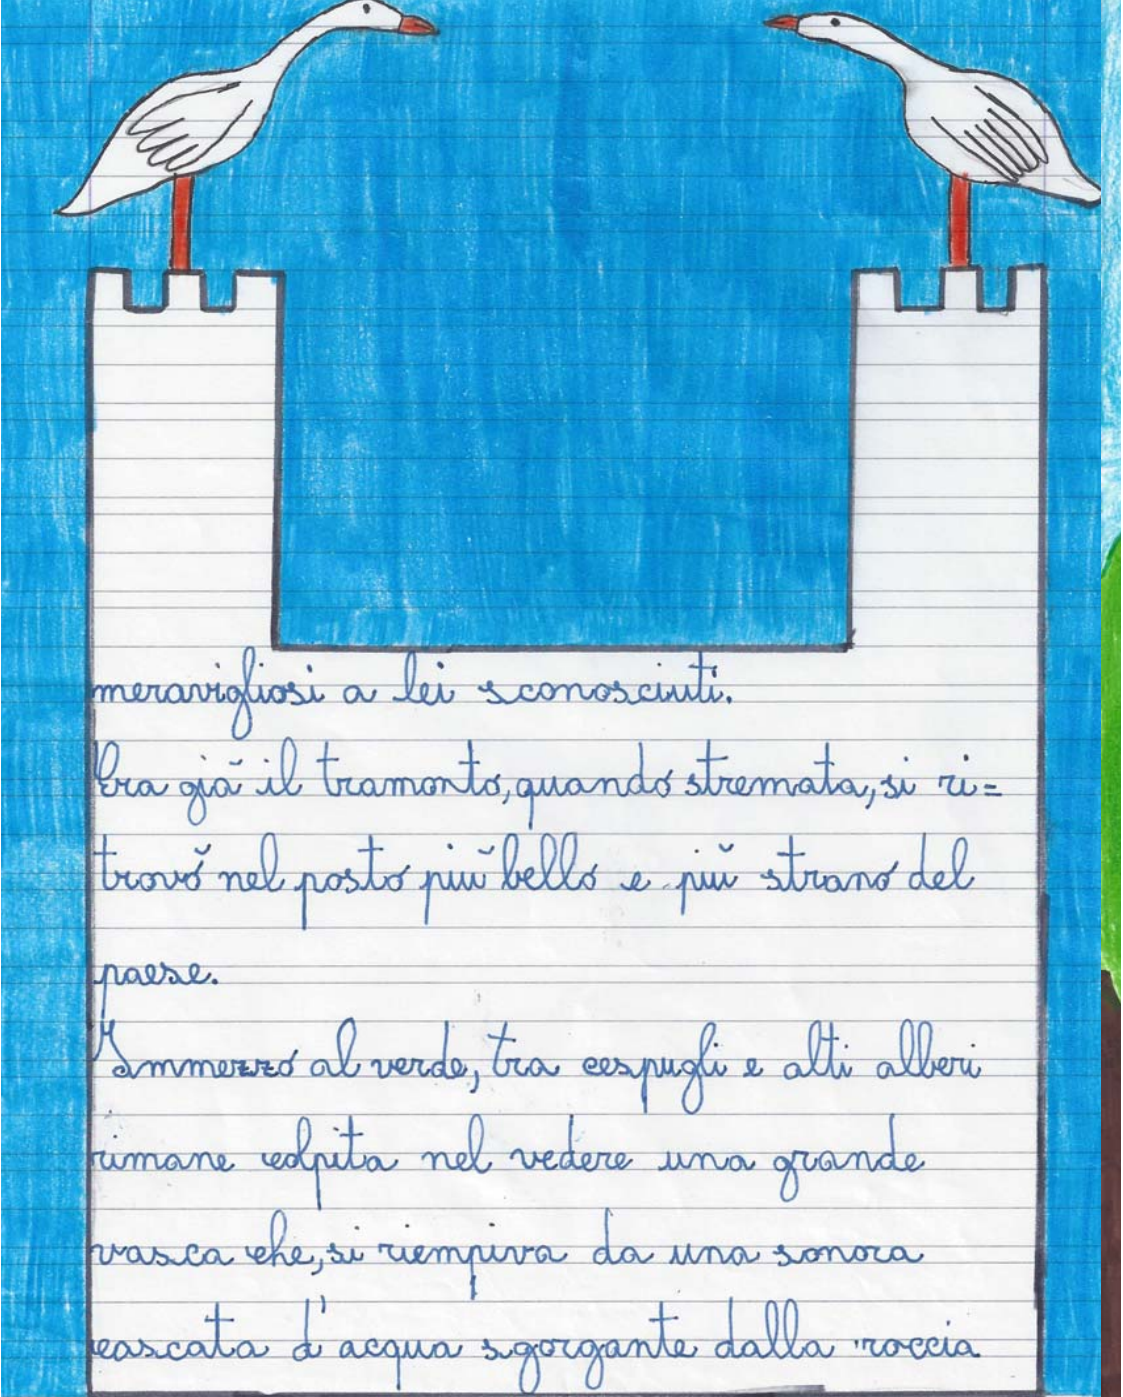 meravigliosi a lei sconosciuti.
Era già il tramonto, quando stremata, si ri=
trovò nel posto più bello e più strano del
paese.
Immezzo al verde, tra cespugli e alti alberi
rimane colpita nel vedere una grande
vasca che, si riempiva da una sonora
cascata d'acqua sgorgante dalla roccia